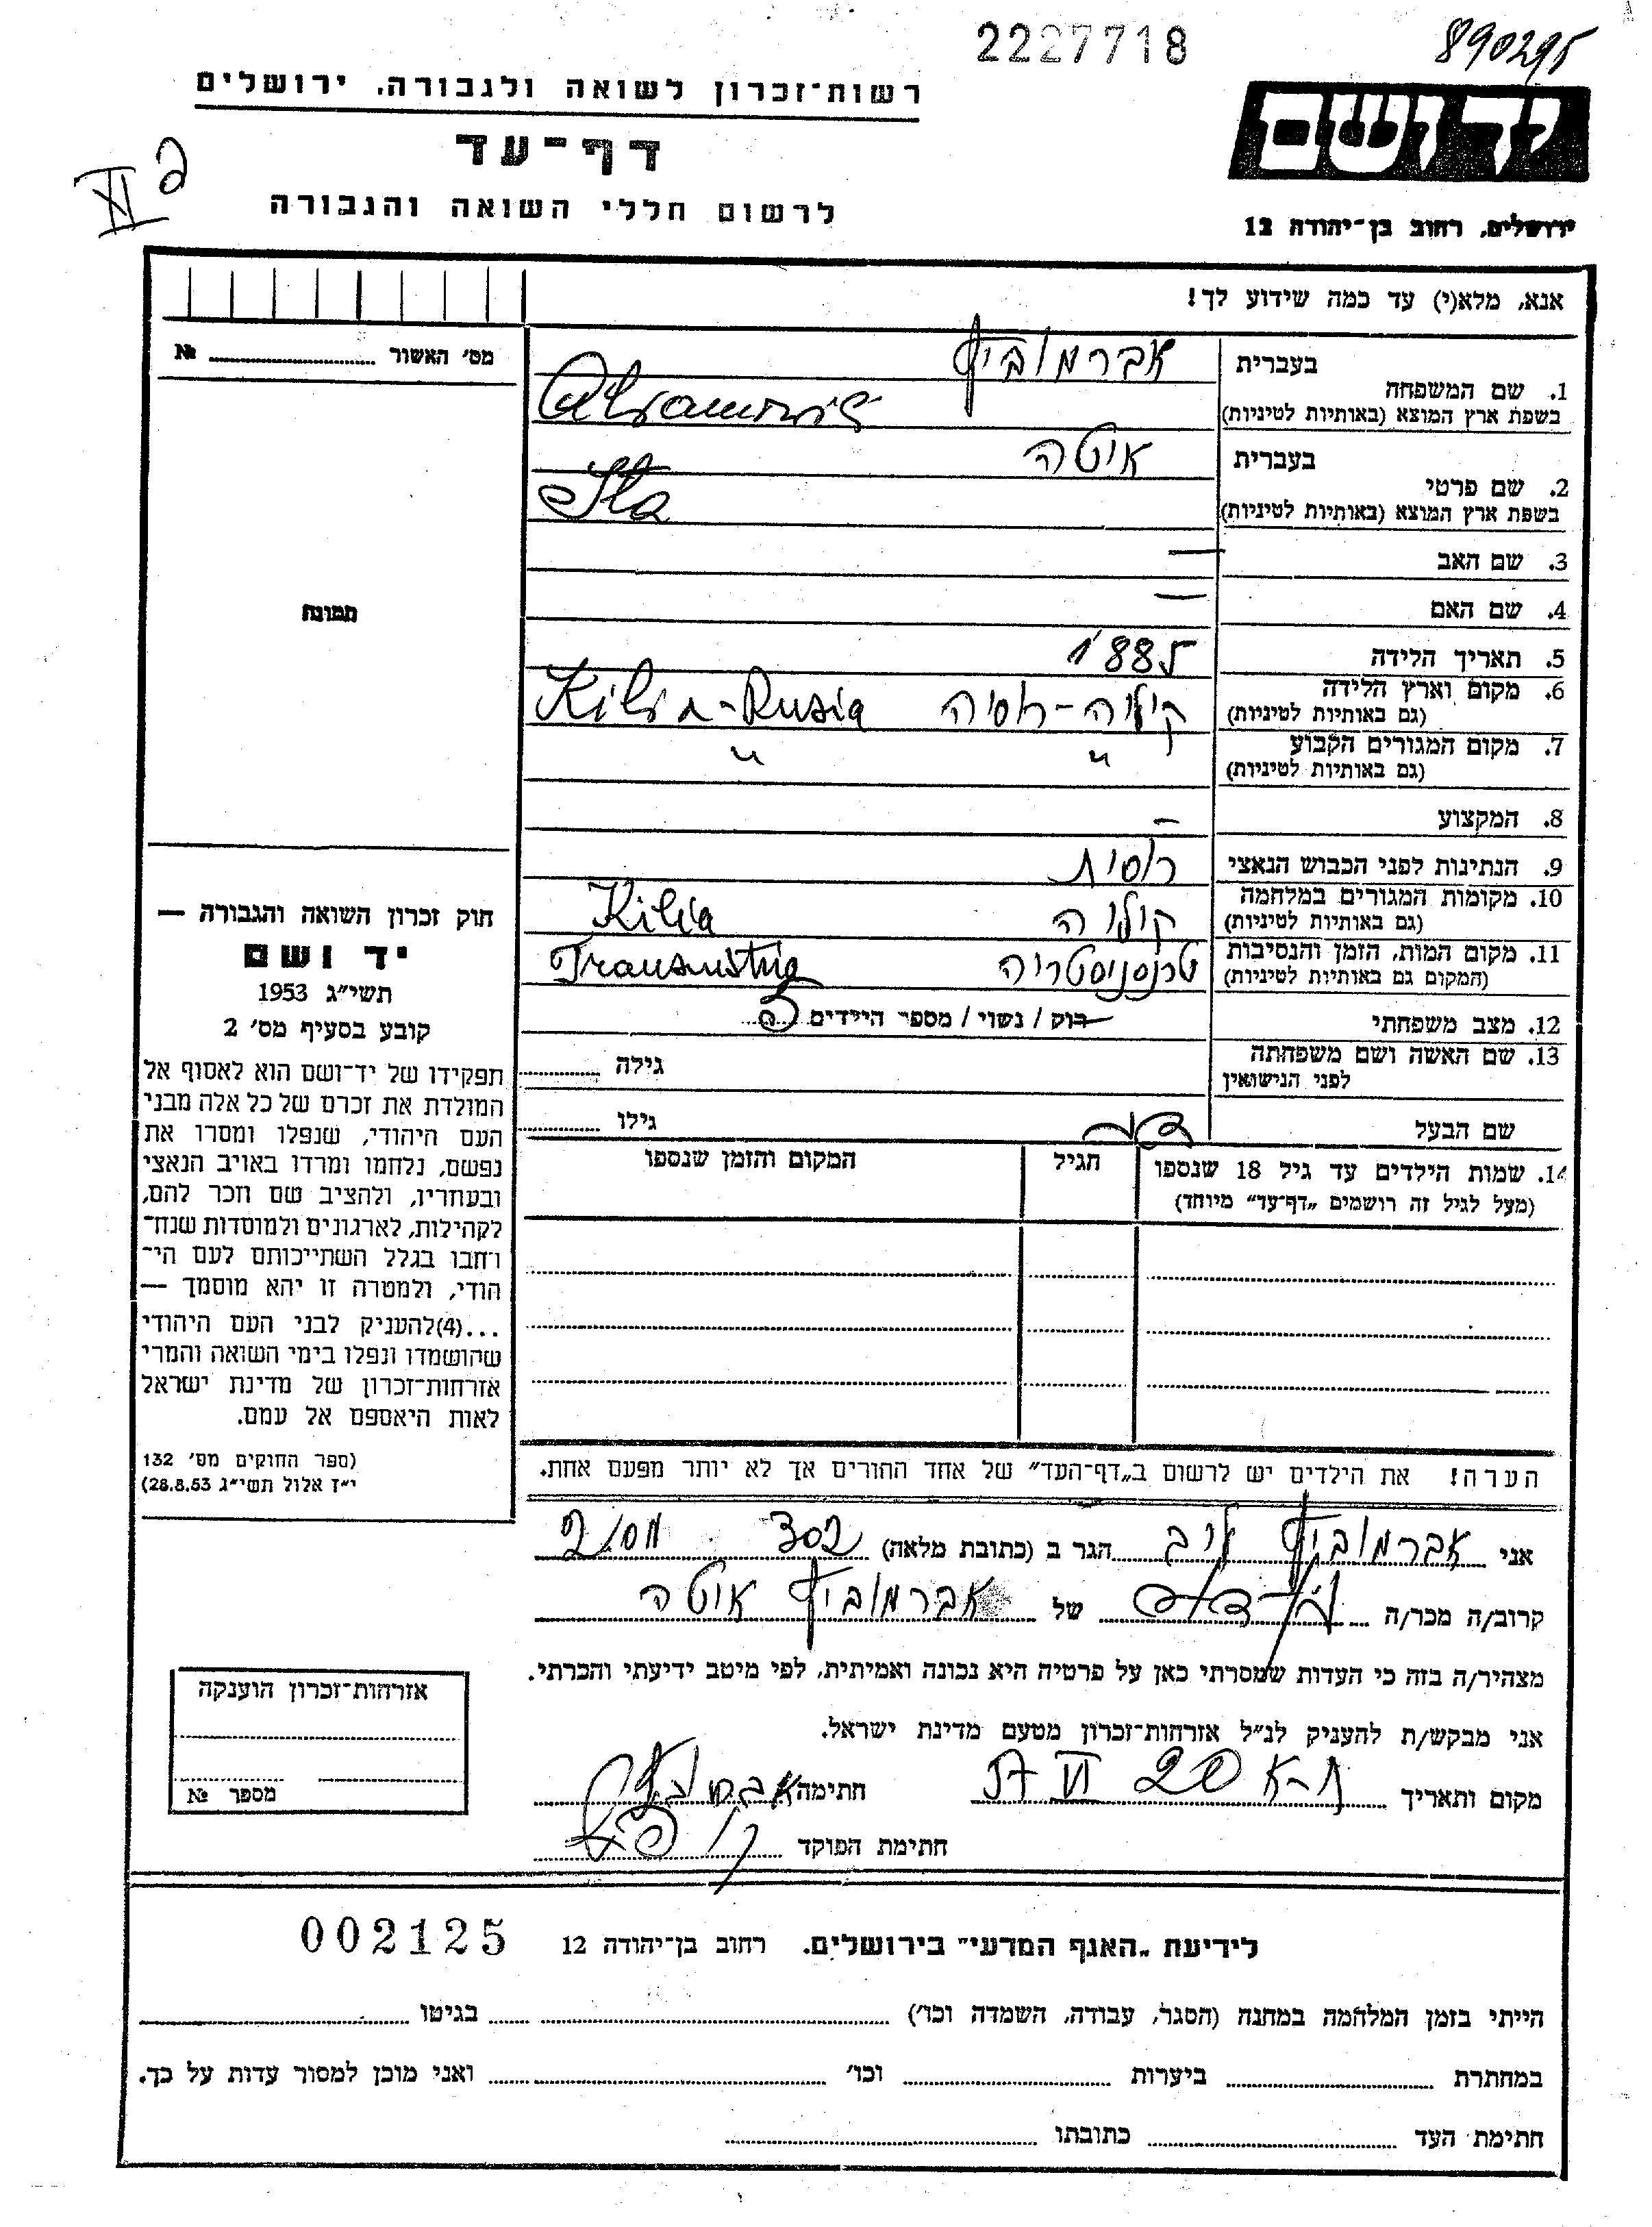 2227718
890295
רשות־זכרון לשואה ולגבורה. ירושלים
יד ושם
דף־עד
לרשום חללי השואה והגבורה
ירושלים, רחוב בן־יהודה 12
אנא, מלא(י) עד כמה שידוע לך!
מס׳ האשור № ........
1. שם המשפחה
בעברית אברמוביץ
בשפת ארץ המוצא (באותיות לטיניות) Abramovic
2. שם פרטי
בעברית איטה
בשפת ארץ המוצא (באותיות לטיניות) Ita
3. שם האב —
4. שם האם —
תמונה
5. תאריך הלידה 1885
6. מקום וארץ הלידה
(גם באותיות לטיניות) קיליה-רוסיה Kilia-Rusia
7. מקום המגורים הקבוע
(גם באותיות לטיניות) " "
8. המקצוע —
9. הנתינות לפני הכבוש הנאצי רוסית
10. מקומות המגורים במלחמה
(גם באותיות לטיניות) קיליה Kilia
11. מקום המות, הזמן והנסיבות
(המקום גם באותיות לטיניות) טרנסניסטריה Transnistria
12. מצב משפחתי רוק / נשוי / מספר הילדים
13. שם האשה ושם משפחתה
לפני הנישואין
גילה ........
שם הבעל
גילו ........
14. שמות הילדים עד גיל 18 שנספו
(מעל לגיל זה רושמים „דף־עד" מיוחד)
הגיל
המקום והזמן שנספו
חוק זכרון השואה והגבורה —
יד ושם
תשי"ג 1953
קובע בסעיף מס׳ 2
תפקידו של יד־ושם הוא לאסוף אל
המולדת את זכרם של כל אלה מבני
העם היהודי, שנפלו ומסרו את
נפשם, נלחמו ומרדו באויב הנאצי
ובעוזריו, ולהציב שם וזכר להם,
לקהילות, לארגונים ולמוסדות שנח־
רבו בגלל השתייכותם לעם הי־
הודי, ולמטרה זו יהא מוסמך —
...(4)להעניק לבני העם היהודי
שהושמדו ונפלו בימי השואה והמרי
אזרחות־זכרון של מדינת ישראל
לאות היאספם אל עמם.
(ספר החוקים מס׳ 132
י"ז אלול תשי"ג 28.8.53)
הערה! את הילדים יש לרשום ב„דף־העד" של אחד ההורים אך לא יותר מפעם אחת.
אני אברמוביץ ליב הגר ב (כתובת מלאה) 302
קרוב/ה מכר/ה של אברמוביץ איטה
מצהיר/ה בזה כי העדות שמסרתי כאן על פרטיה היא נכונה ואמיתית, לפי מיטב ידיעתי והכרתי.
אני מבקש/ת להעניק לנ"ל אזרחות־זכרון מטעם מדינת ישראל.
מקום ותאריך ת-א 20 VI 57 חתימה אברמוביץ
חתימת הפוקד
אזרחות־זכרון הוענקה
מספר №
לידיעת „האגף המדעי" בירושלים. רחוב בן־יהודה 12
002125
הייתי בזמן המלחמה במחנה (הסגר, עבודה, השמדה וכו׳) ........ בגיטו ........
במחתרת ........ ביערות ........ וכו׳ ........ ואני מוכן למסור עדות על כך.
חתימת העד ........ כתובתו ........